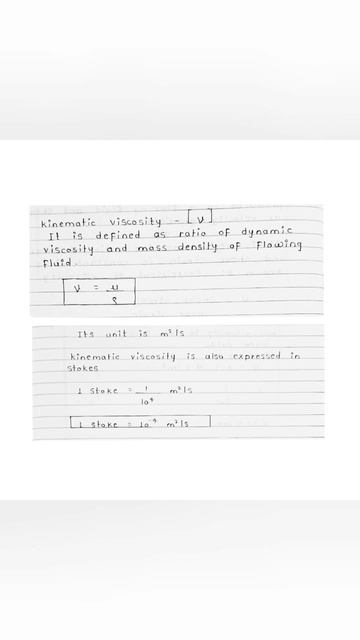 kinematic viscosity - [ν]
It is defined as ratio of dynamic
viscosity and mass density of flowing
fluid.
ν = μ / ρ
Its unit is m²/s
kinematic viscosity is also expressed in
stokes
1 stoke = 1 / 10⁴ m²/s
1 stoke = 10⁻⁴ m²/s